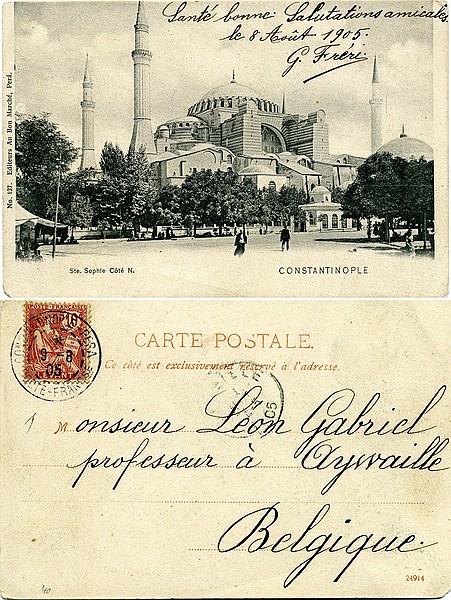 Santé bonne. Salutations amicales
le 8 Août 1905.
G. Fréri
No. 137. Editeurs Au Bon Marché, Pera.
Ste. Sophie Côté N.
CONSTANTINOPLE
CARTE POSTALE.
Ce côté est exclusivement réservé à l'adresse.
9-8
05
1
Monsieur Léon Gabriel
professeur à Aywaille
Belgique.
24914
40